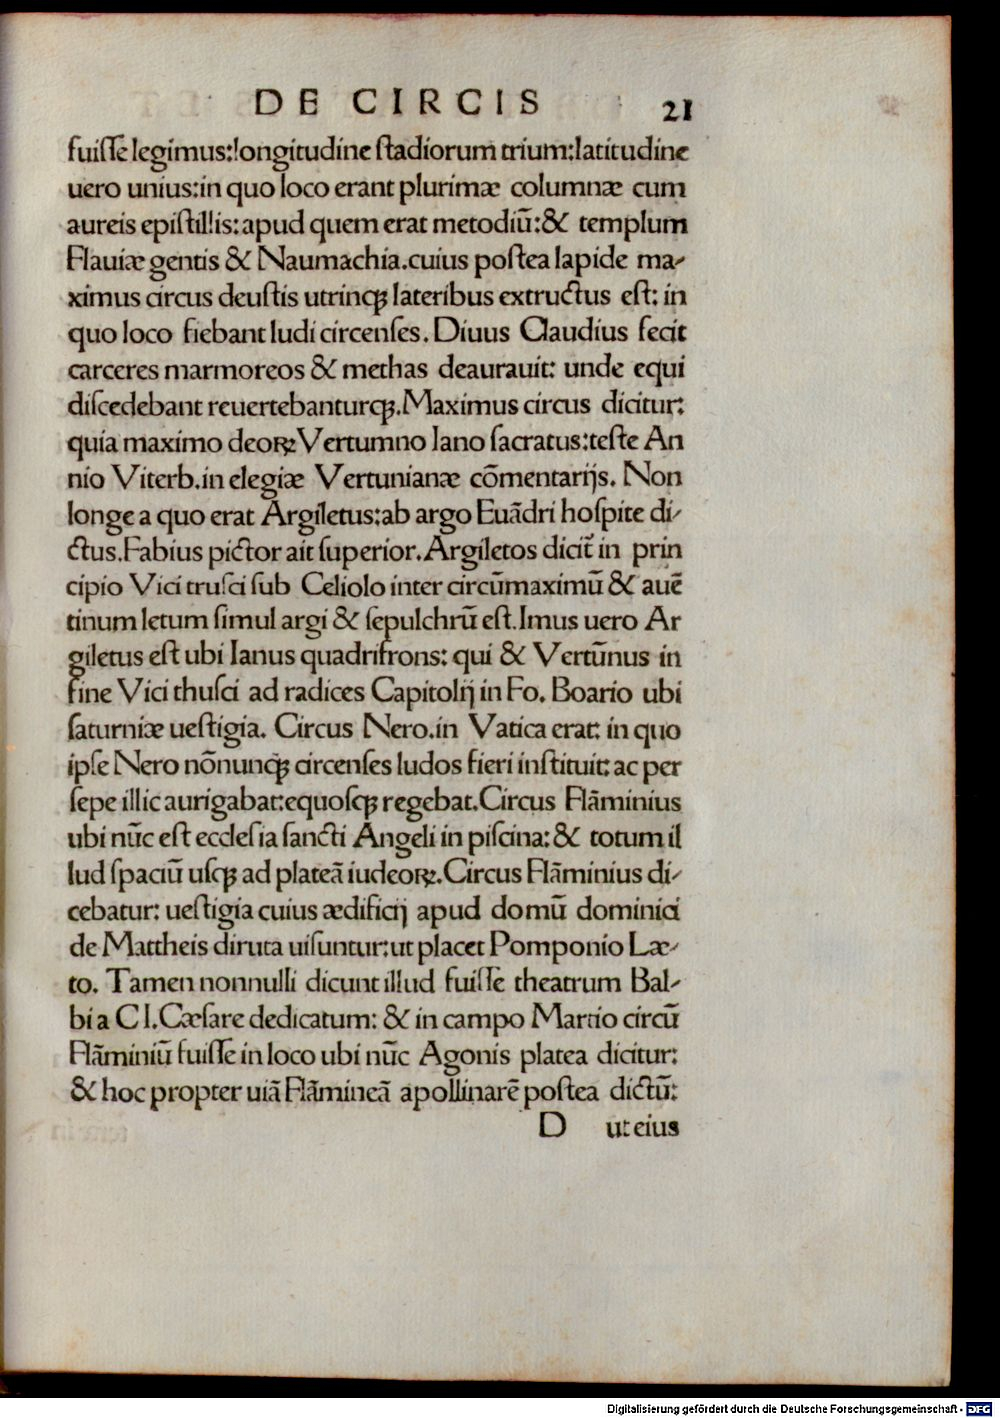 DE CIRCIS 21
fuiſſe legimus:longitudine ſtadiorum trium:latitudine
uero unius:in quo loco erant plurimæ columnæ cum
aureis epiſtillis:apud quem erat metodiū:& templum
Flauiæ gentis & Naumachia.cuius poſtea lapide ma-
ximus circus deuſtis utrinqꝫ lateribus extructus eſt: in
quo loco fiebant ludi circenſes. Diuus Claudius fecit
carceres marmoreos & methas deaurauit: unde equi
diſcedebant reuertebanturqꝫ.Maximus circus dicitur:
quia maximo deoꝝ Vertumno Iano ſacratus:teſte An
nio Viterb.in elegiæ Vertunianæ cōmentarijs. Non
longe a quo erat Argiletus:ab argo Euādri hoſpite di-
ctus.Fabius pictor ait ſuperior.Argiletos dicit̄ in prin
cipio Vici truſci ſub Celiolo inter circūmaximū & auē
tinum letum ſimul argi & ſepulchrū eſt.Imus uero Ar
giletus eſt ubi Ianus quadrifrons: qui & Vertūnus in
fine Vici thuſci ad radices Capitolij in Fo. Boario ubi
ſaturniæ ueſtigia. Circus Nero.in Vatica erat: in quo
ipſe Nero nōnunqꝫ circenſes ludos fieri inſtituit: ac per
ſepe illic aurigabat:equoſqꝫ regebat.Circus Flāminius
ubi nūc eſt eccleſia ſancti Angeli in piſcina: & totum il
lud ſpaciū uſqꝫ ad plateā iudeoꝝ.Circus Flāminius di-
cebatur: ueſtigia cuius ædificij apud domū dominici
de Mattheis diruta uiſuntur:ut placet Pomponio Læ-
to. Tamen nonnulli dicunt illud fuiſſe theatrum Bal-
bi a Cl.Cæſare dedicatum: & in campo Martio circū
Flāminiū fuiſſe in loco ubi nūc Agonis platea dicitur:
& hoc propter uiā Flāmineā apollinarē poſtea dictū:
D ut eius
Digitalisierung gefördert durch die Deutsche Forschungsgemeinschaft - DFG